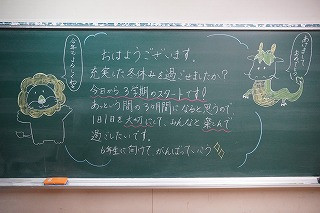 おはようございます。
充実した冬休みを過ごせましたか?
今日から3学期のスタートです!
あっという間の3か月間になると思うので
1日1日を大切にして、みんなと楽しんで
過ごしたいです。
6年生に向けて、がんばっていこう
今年もよろしくね
あけまして
おめでとう